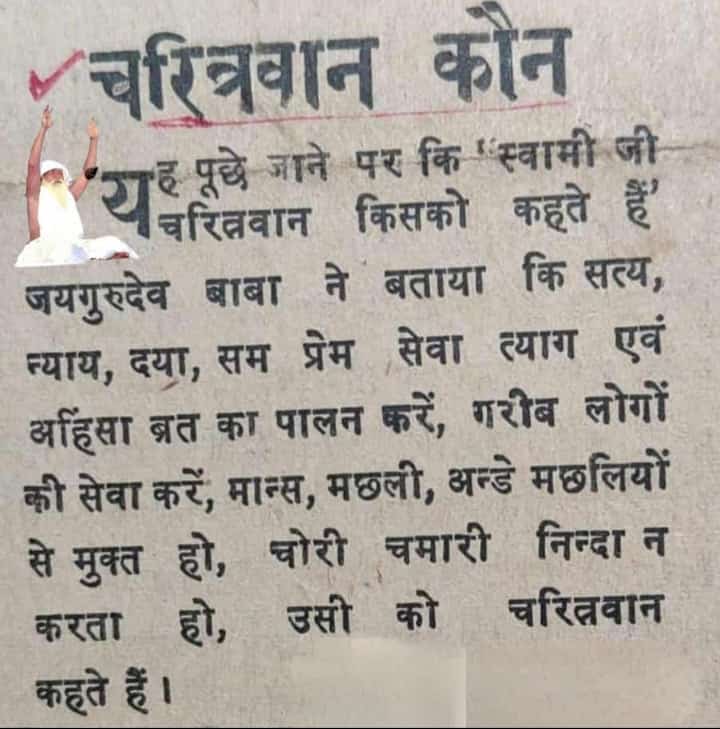 चरित्रवान कौन
यह पूछे जाने पर कि "स्वामी जी
चरित्रवान किसको कहते हैं'
जयगुरुदेव बाबा ने बताया कि सत्य,
न्याय, दया, सम प्रेम सेवा त्याग एवं
अहिंसा ब्रत का पालन करें, गरीब लोगों
की सेवा करें, मान्स, मछली, अन्डे मछलियों
से मुक्त हो, चोरी चमारी निन्दा न
करता हो, उसी को चरित्रवान
कहते हैं।